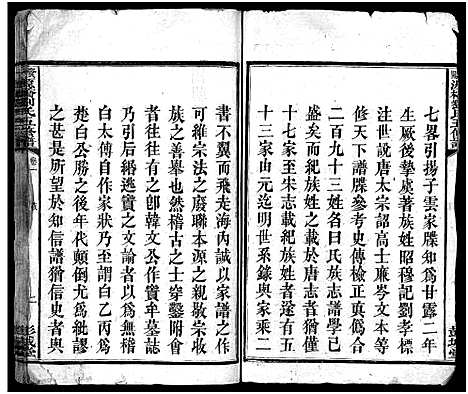 七畧引揚子雲家牒知爲甘露二年
生厥後摯虞著族姓昭穆記劉孝標
注世説唐太宗詔高士廉岑文本等
修天下譜牒參考史傳檢正真僞合
二百九十三姓名曰氏族志譜學已
盛矣而紀族姓之載於唐志者猶僅
十七家至宋志載紀族姓者遂有五
十三家由元迄明世系錄與家乘二
書不翼而飛走海内誠以家譜之作
可維宗法之廢聯本源之親敦宗收
族之善舉也然稽古之士穿鑿附會
者往往有之卽韓文公作畢墓誌
乃引后緡逃竇之文論者非之
白太傅作自家狀乃至以白乙丙爲
楚白公勝之後年代顛倒尤爲紕謬
之甚是所望於知信譜猶信史者與
彭城堂
卷一